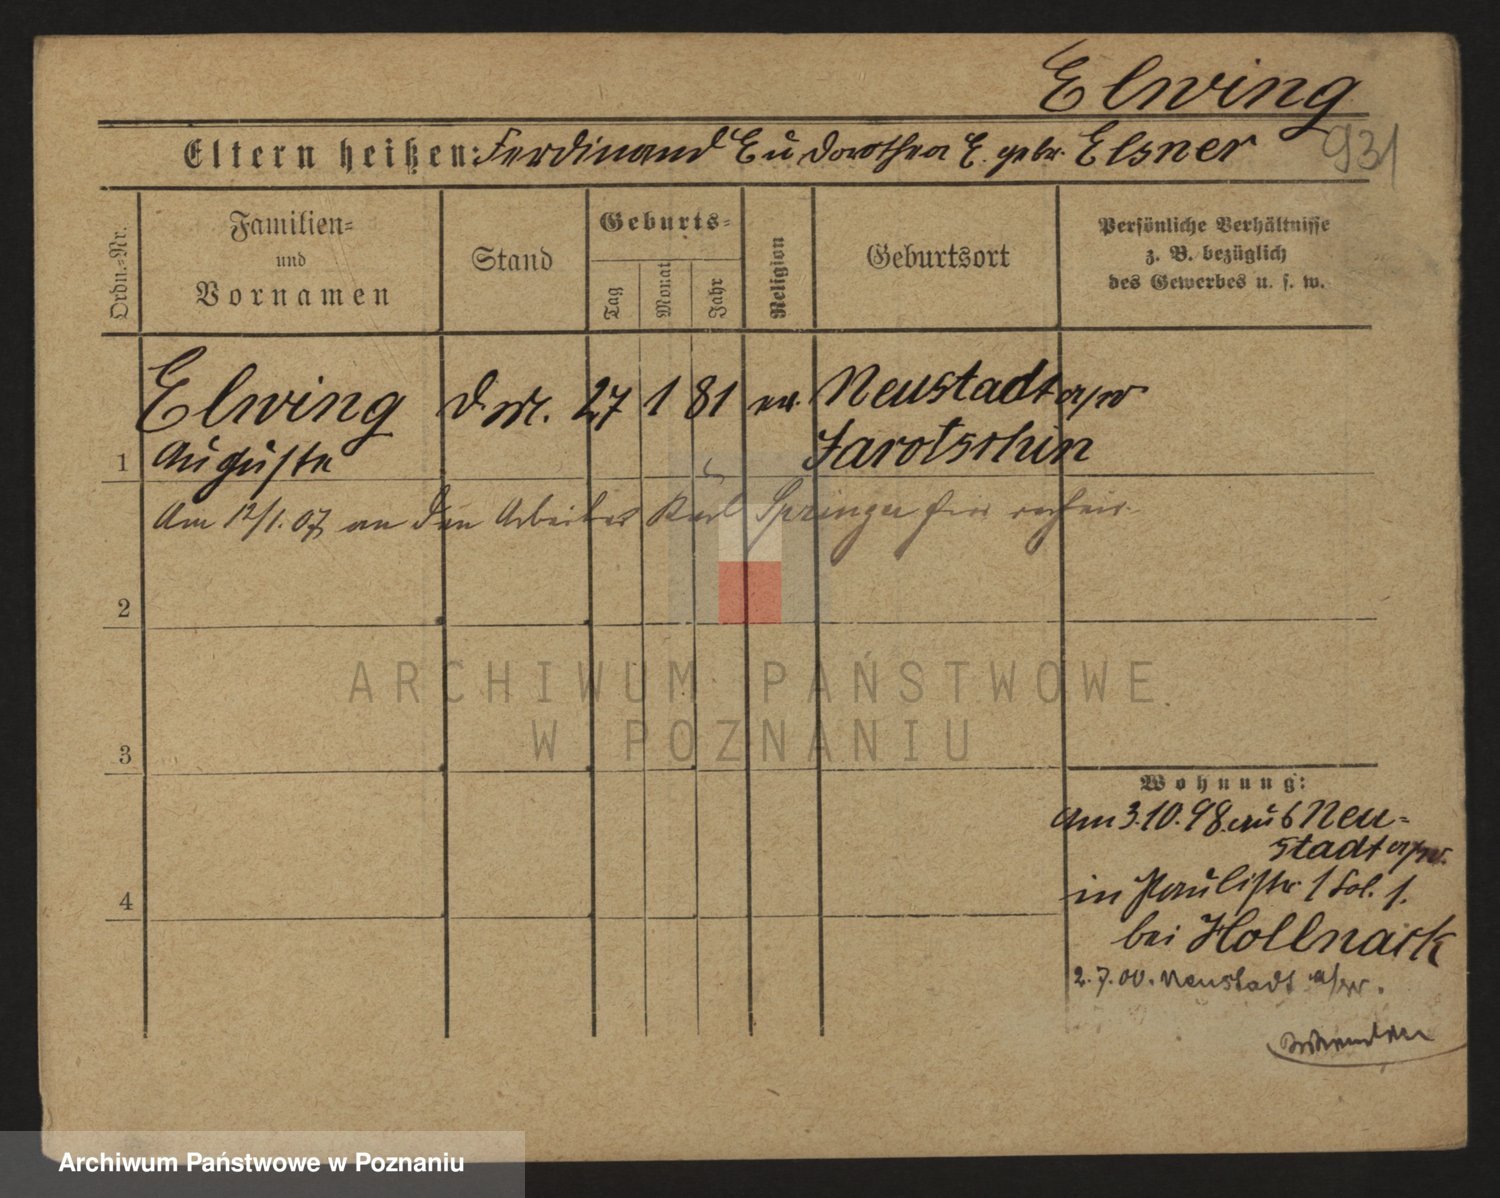 Elwing
Eltern heißen: Ferdinand E u Dorothea E. gebr. Elsner
931
Ordn.-Nr.
Familien-
und
Vornamen
Stand
Geburts-
Tag
Monat
Jahr
Religion
Geburtsort
Persönliche Verhältnisse
z. B. bezüglich
des Gewerbes u. s. w.
Elwing
Auguste
27
1
81
ev.
Neustadt a/W
Jarotschin
1
Am 12/1. 07 an den Arbeiter Karl Springer hier verheir.
2
3
4
ARCHIWUM PAŃSTWOWE
W POZNANIU
Wohnung:
Am 3.10.98. aus Neu-
stadt a/W.
in Paulistr. 1
bei Hollnack
2.7.00. Neustadt a/W.
Archiwum Państwowe w Poznaniu